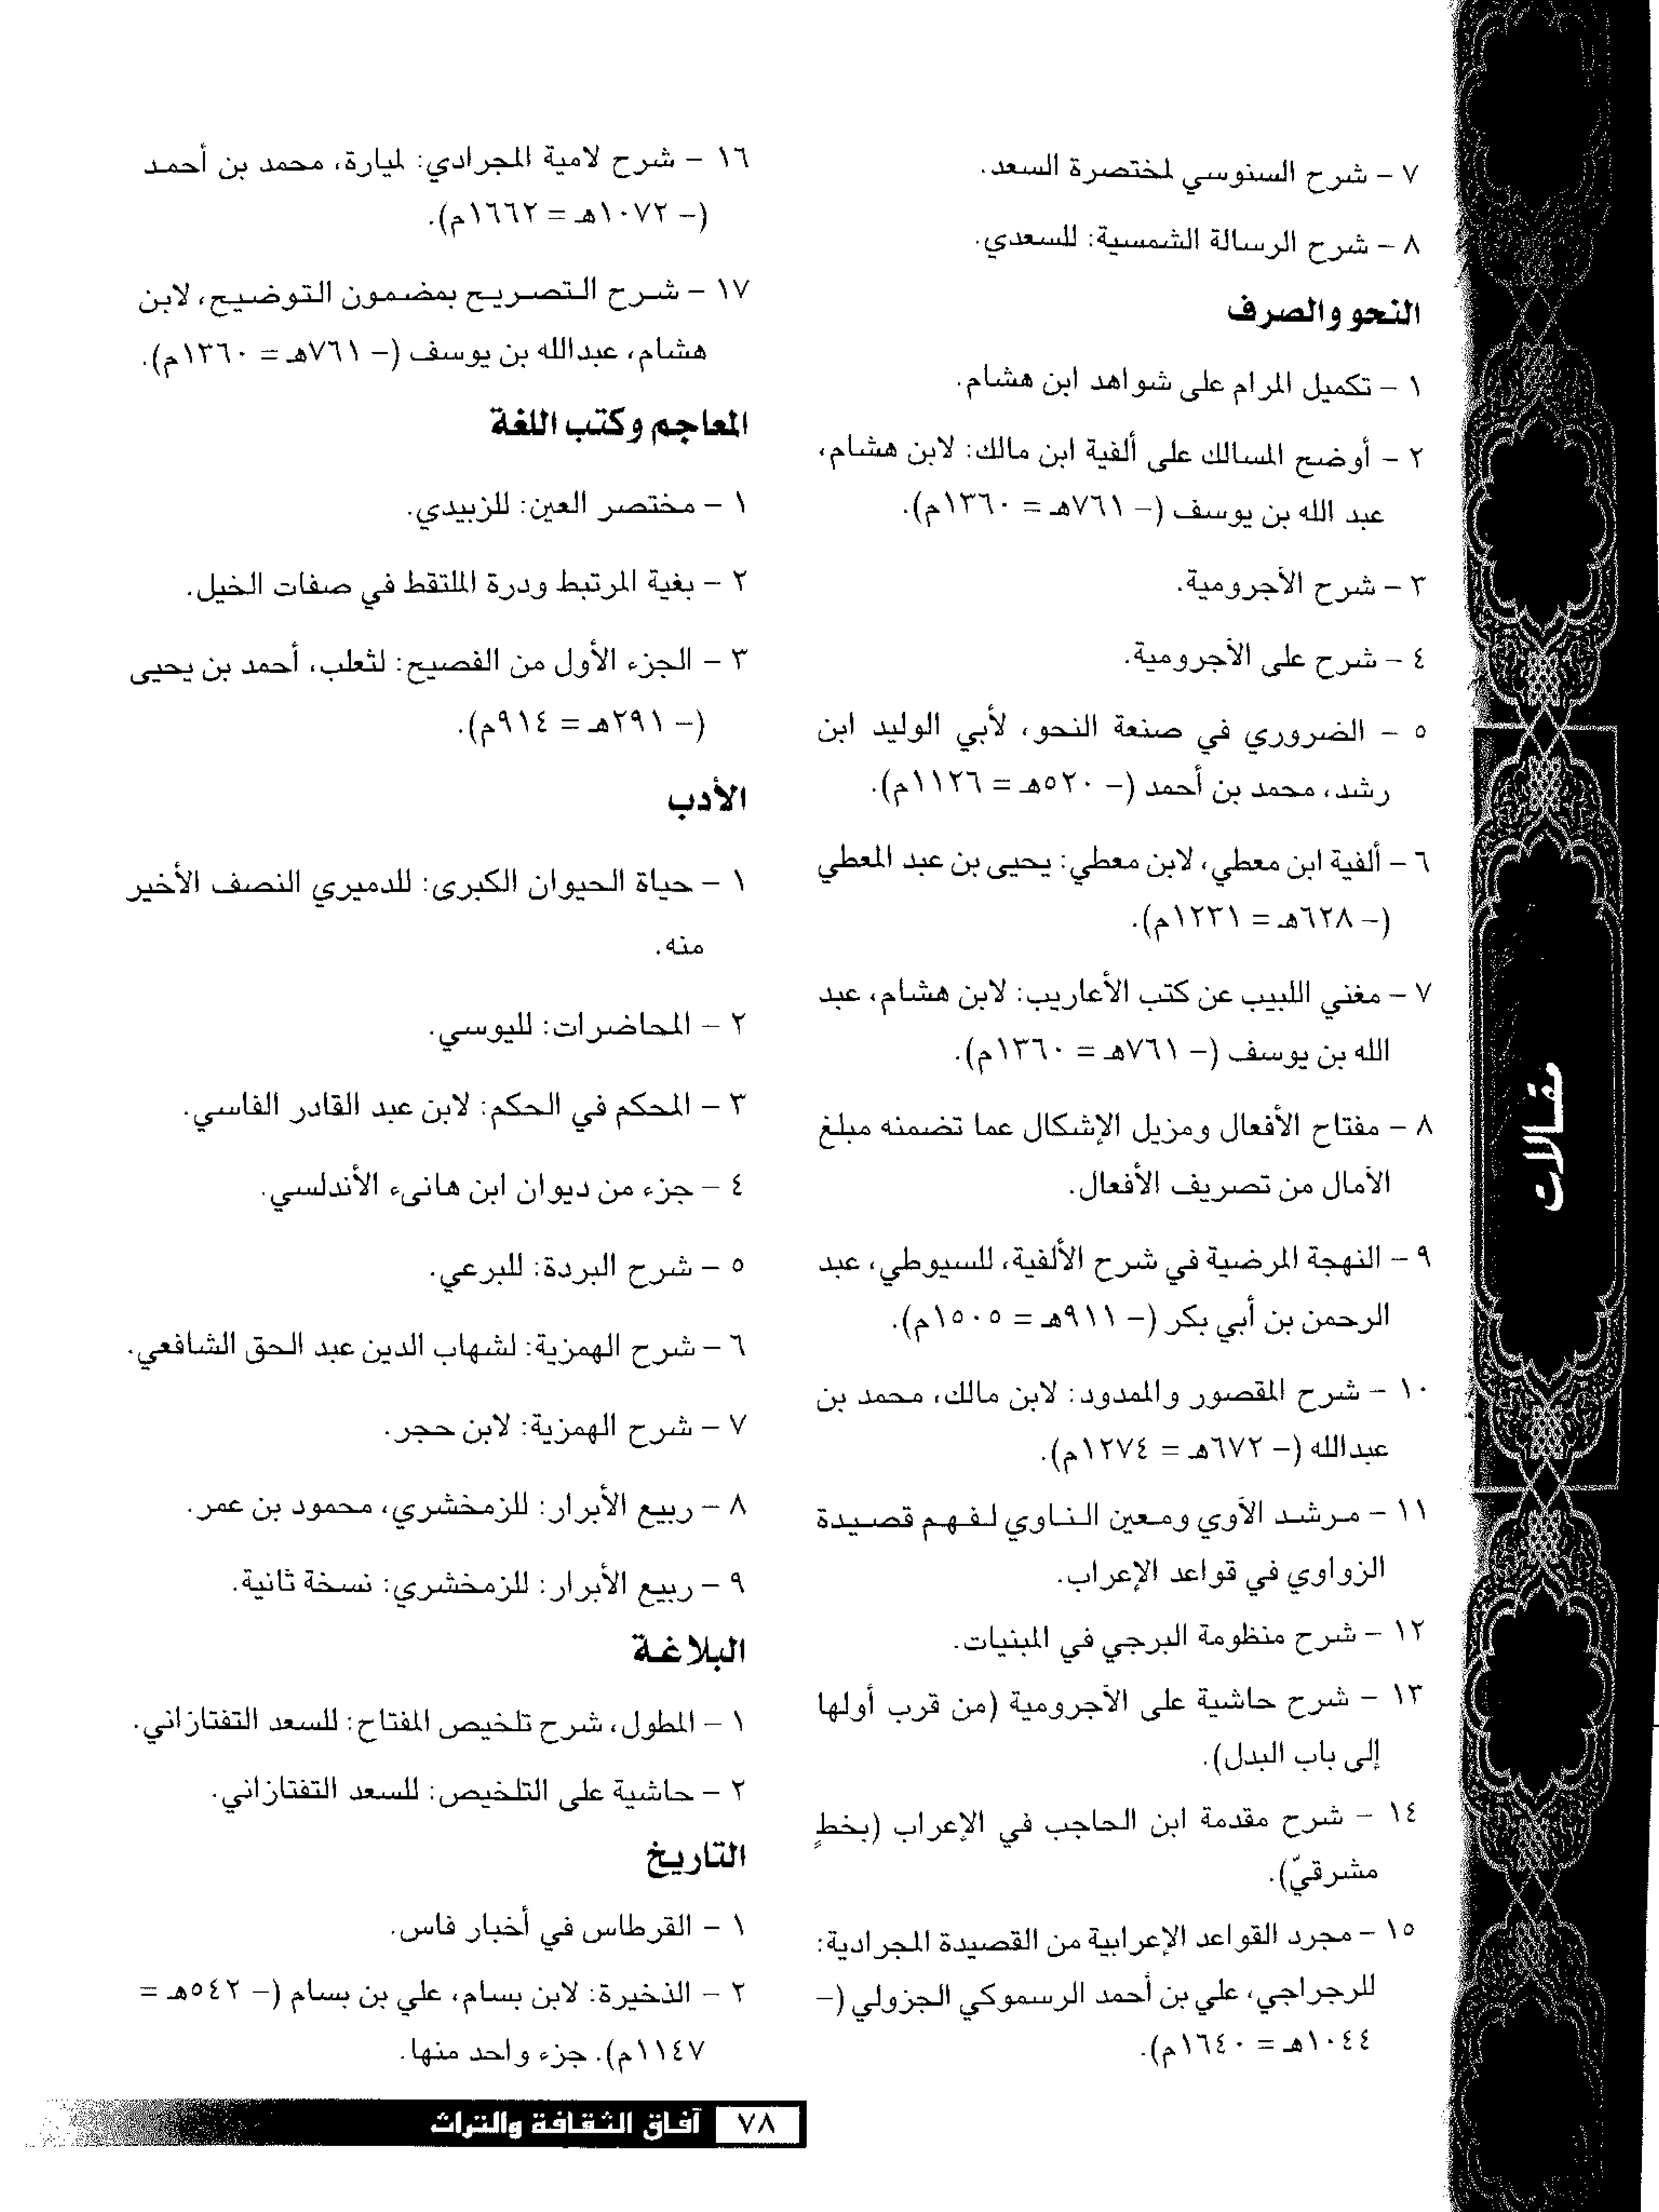 ٧ - شرح السنوسي لمختصرة السعد.
٨ - شرح الرسالة الشمسية: للسعدي.
النحو والصرف
١ - تكميل المرام على شواهد ابن هشام.
٢ - أوضح المسالك على ألفية ابن مالك: لابن هشام،
عبد الله بن يوسف (- ٧٦١هـ = ١٣٦٠م).
٣ - شرح الآجرومية.
٤ - شرح على الآجرومية.
٥ - الضروري في صنعة النحو، لأبي الوليد ابن
رشد، محمد بن أحمد (- ٥٢٠هـ = ١١٢٦م).
٦ - ألفية ابن معطي، لابن معطي: يحيى بن عبد المعطي
(- ٦٢٨هـ = ١٢٣١م).
٧ - مغني اللبيب عن كتب الأعاريب: لابن هشام، عبد
الله بن يوسف (- ٧٦١هـ = ١٣٦٠م).
٨ - مفتاح الأفعال ومزيل الإشكال عما تضمنه مبلغ
الآمال من تصريف الأفعال.
٩ - النهجة المرضية في شرح الألفية، للسيوطي، عبد
الرحمن بن أبي بكر (- ٩١١هـ = ١٥٠٥م).
١٠ - شرح المقصور والممدود: لابن مالك، محمد بن
عبدالله (- ٦٧٢هـ = ١٢٧٤م).
١١ - مرشد الآوي ومعين الناوي لفهم قصيدة
الزواوي في قواعد الإعراب.
١٢ - شرح منظومة البرجي في المبنيات.
١٣ - شرح حاشية على الآجرومية (من قرب أولها
إلى باب البدل).
١٤ - شرح مقدمة ابن الحاجب في الإعراب (بخطٍ
مشرقيّ).
١٥ - مجرد القواعد الإعرابية من القصيدة المجرادية:
للرجراجي، علي بن أحمد الرسموكي الجزولي (-
١٠٤٤هـ = ١٦٤٠م).
١٦ - شرح لامية المجرادي: لميارة، محمد بن أحمد
(- ١٠٧٢هـ = ١٦٦٢م).
١٧ - شرح التصريح بمضمون التوضيح، لابن
هشام، عبدالله بن يوسف (- ٧٦١هـ = ١٣٦٠م).
المعاجم وكتب اللغة
١ - مختصر العين: للزبيدي.
٢ - بغية المرتبط ودرة الملتقط في صفات الخيل.
٣ - الجزء الأول من الفصيح: لثعلب، أحمد بن يحيى
(- ٢٩١هـ = ٩١٤م).
الأدب
١ - حياة الحيوان الكبرى: للدميري النصف الأخير
منه.
٢ - المحاضرات: لليوسي.
٣ - المحكم في الحكم: لابن عبد القادر الفاسي.
٤ - جزء من ديوان ابن هانىء الأندلسي.
٥ - شرح البردة: للبرعي.
٦ - شرح الهمزية: لشهاب الدين عبد الحق الشافعي.
٧ - شرح الهمزية: لابن حجر.
٨ - ربيع الأبرار: للزمخشري، محمود بن عمر.
٩ - ربيع الأبرار: للزمخشري: نسخة ثانية.
البلاغة
١ - المطول، شرح تلخيص المفتاح: للسعد التفتازاني.
٢ - حاشية على التلخيص: للسعد التفتازاني.
التاريخ
١ - القرطاس في أخبار فاس.
٢ - الذخيرة: لابن بسام، علي بن بسام (- ٥٤٢هـ =
١١٤٧م). جزء واحد منها.
مقالات
٧٨ آفاق الثقافة والتراث